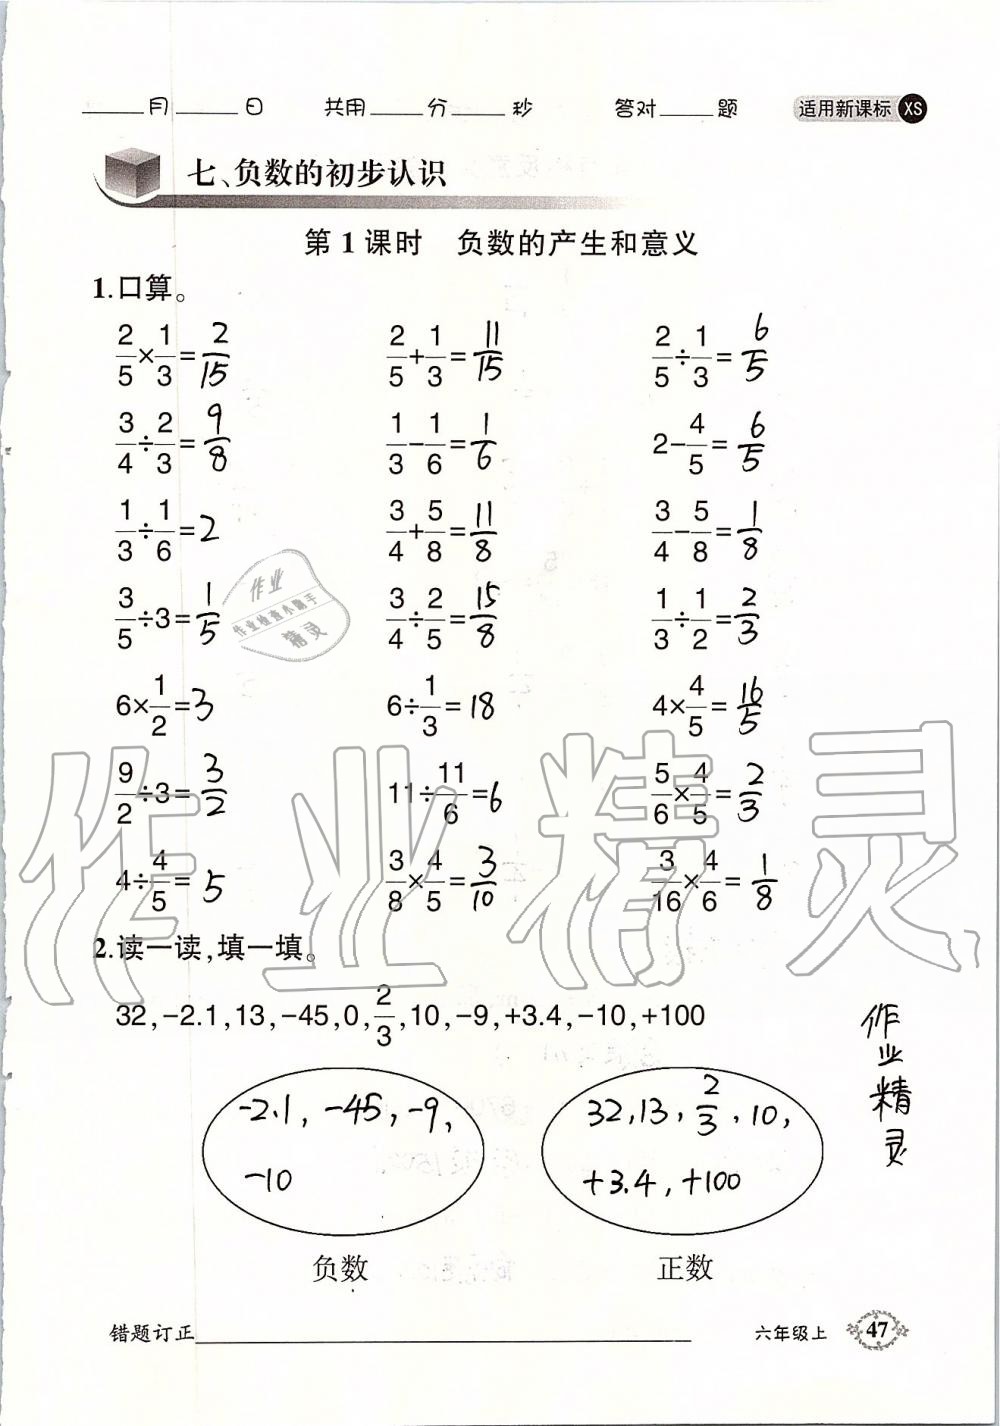 ____月____日 共用____分____秒 答对____题 适用新课标 XS
七、负数的初步认识
第1课时 负数的产生和意义
1.口算。
2/5×1/3=2/15 2/5+1/3=11/15 2/5÷1/3=6/5
3/4÷2/3=9/8 1/3-1/6=1/6 2-4/5=6/5
1/3÷1/6=2 3/4+5/8=11/8 3/4-5/8=1/8
3/5÷3=1/5 3/4÷2/5=15/8 1/3÷1/2=2/3
作业
作业检查小助手
精灵
6×1/2=3 6÷1/3=18 4×4/5=16/5
9/2÷3=3/2 11÷11/6=6 5/6×4/5=2/3
4÷4/5=5 3/8×4/5=3/10 3/16×4/6=1/8
作业精灵
2.读一读,填一填。
32,-2.1,13,-45,0,2/3,10,-9,+3.4,-10,+100
-2.1,-45,-9, 32,13,2/3,10,
-10 +3.4,+100
负数 正数
作业精灵
错题订正____ 六年级上 47